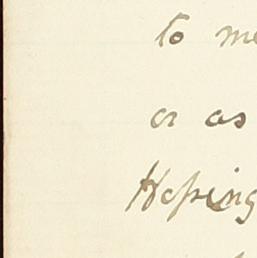 to me
or as
Hoping